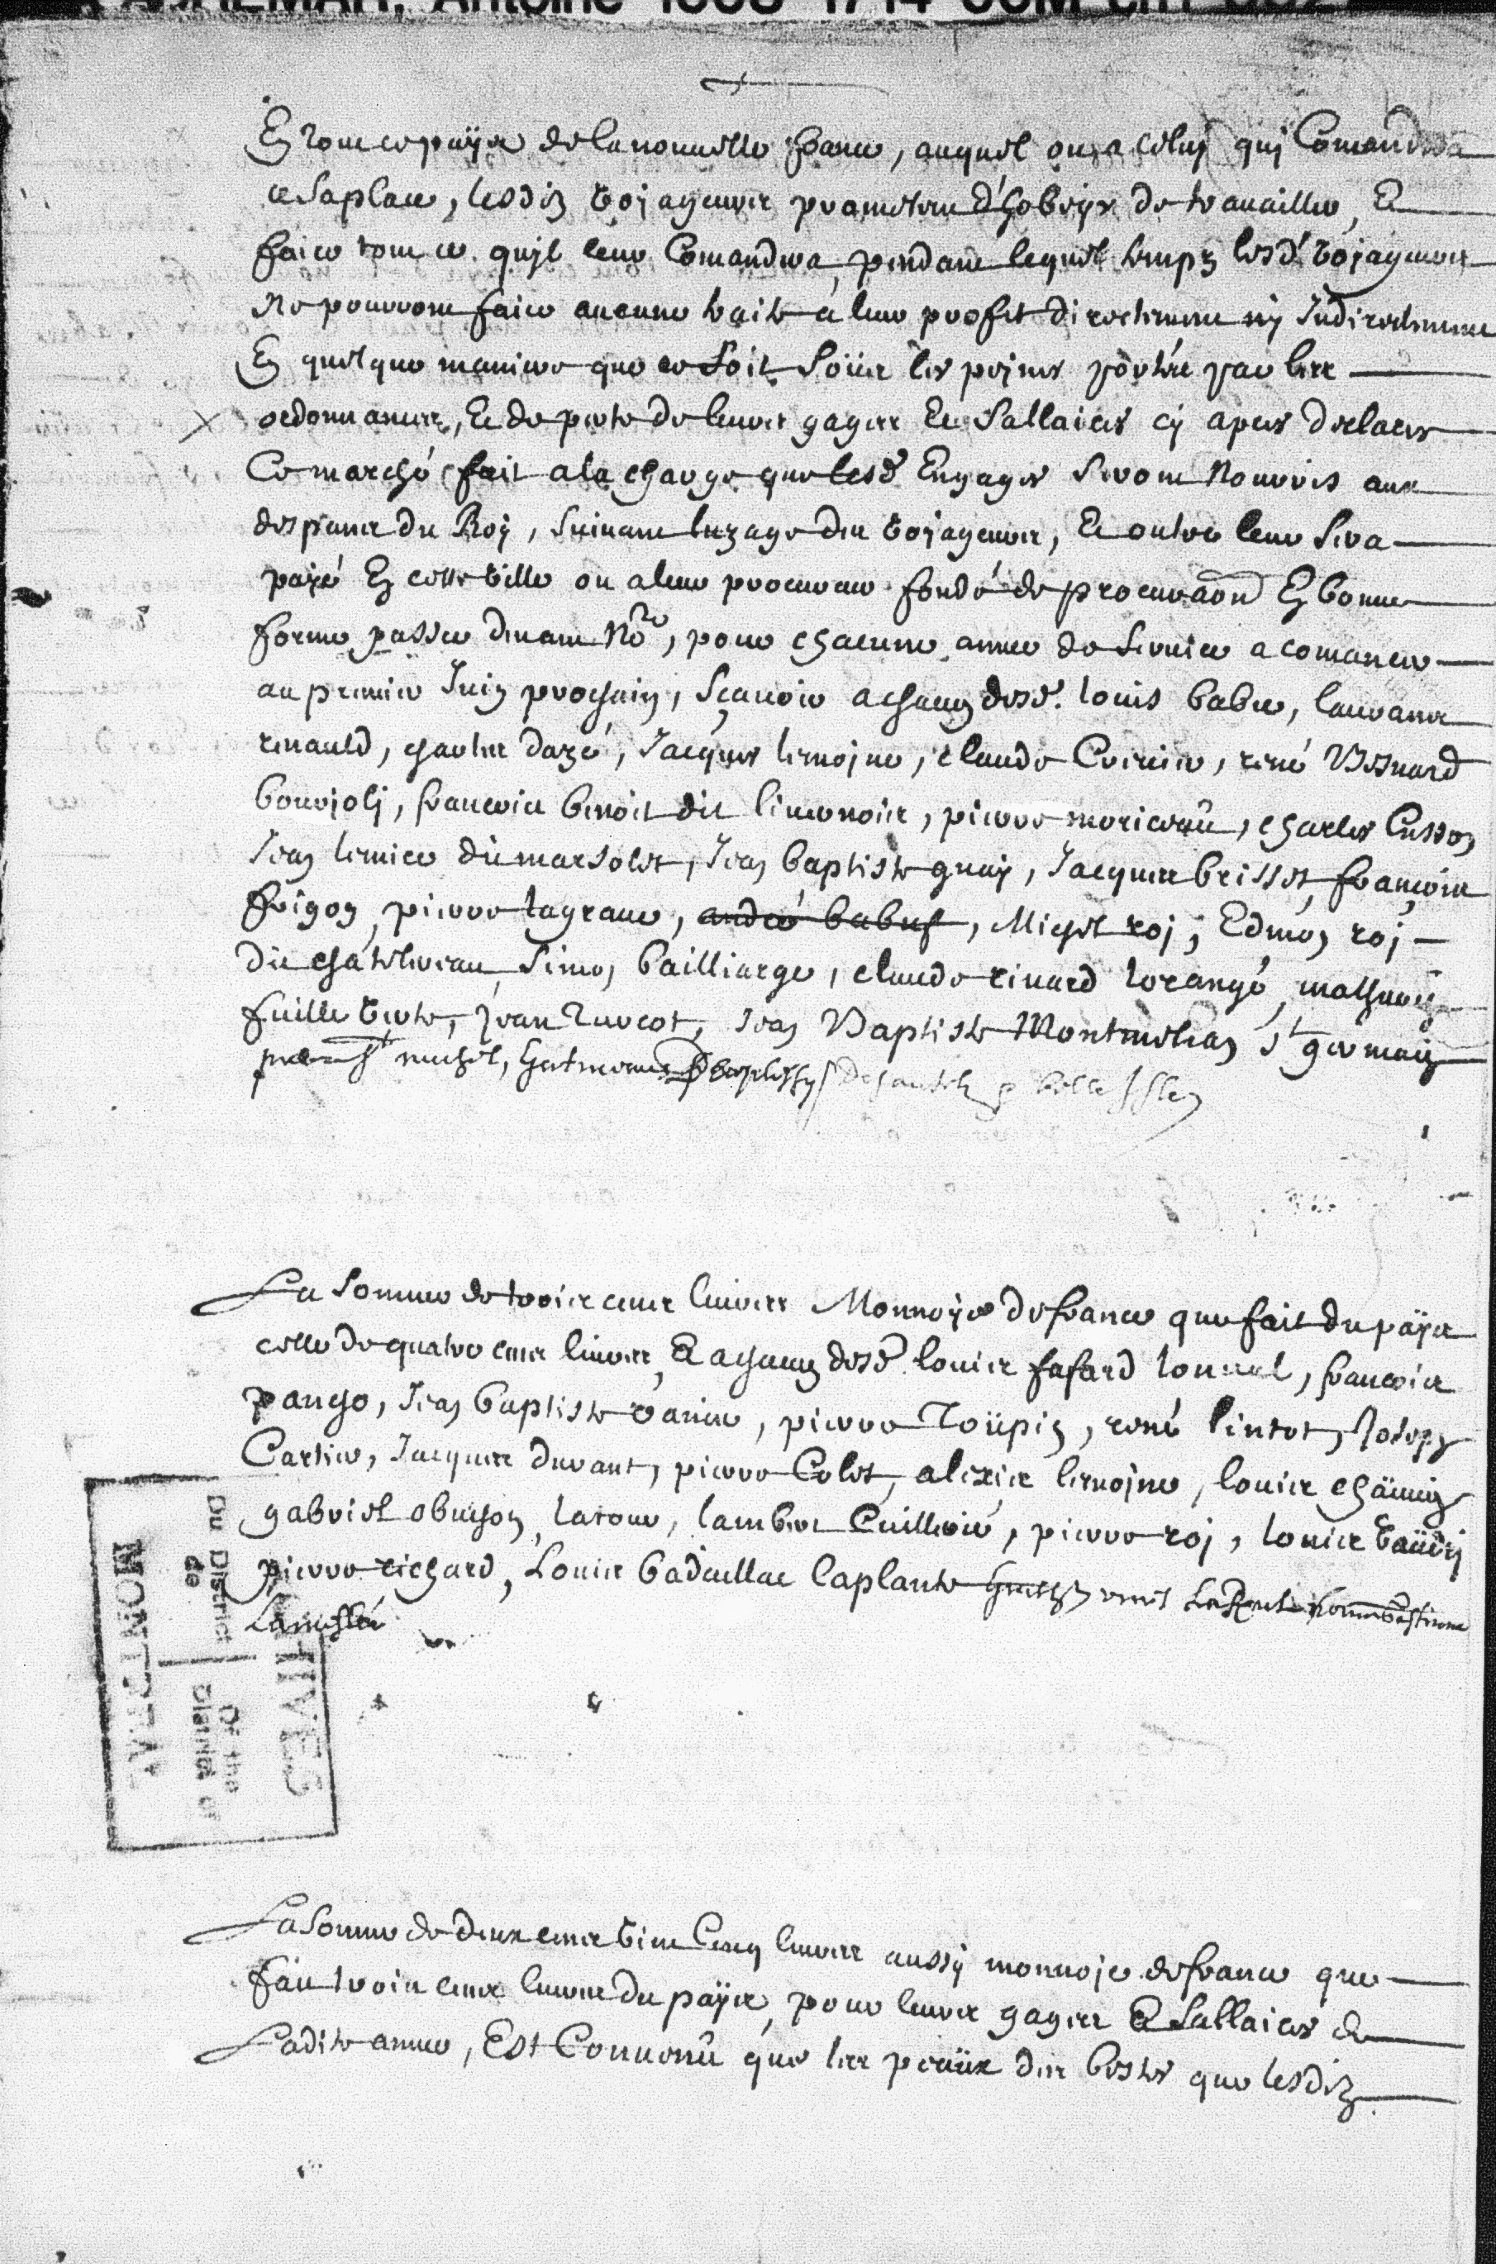 ADHEMAR, Antoine 1668-1714
En tout ce païs de la nouvelle france, auquel ou a celuy quj Comandera
a Saplace, lesdiz voiageurs promettent d'hobeyr de travailler, Et
faire tout ce quil leur Comandera, pendant lequel temps lesd. voiageurs
Ne pourront faire aucune traite a leur profit directement ny Indirectement
En quelque maniere que ce Soit Soüs les peines portée par les
ordonnances, Et de perte de leurs gages Et Sallaires cy apres declarez
Ce marché fait ala charge que lesd. Engagez Seront Nourris aux
despans du Roy, Suivant luzage des voiageurs, Et outre leur Sera
payé En cette ville ou a leur procureur fondé de procuraõn En bonne
forme passée devant Nore, pour chacune année de Service a comancer
au premier Juin prochain, Scavoir a chacun desd. louis babie, laurans
renauld, charles dazé, Jacques lemoine, claude Crevier, rené Besnard
bourjolj, francois benoit dit livernois, pierre moriceau, charles Cusson
Jean lemire du marsolet, Jean baptiste guay, Jacques brisset, françois
frigon, pierre lagrave, andré babuf, Michel roj, Edmon roj
dit chatelereau, Simon bailliarge, claude rivard lorangé, mathurin
fuille verte, jean Turcot, Jean Baptiste Montmelian St germain
La Somme de trois cens livres Monnoye de france que fait du païs
celle de quatre cens livres, Et a chacun desd. louis fafard lonval, francois
pango, Jean baptiste varine, pierre Toüpin, rené lintot, Joseph
Cartier, Jacques durant, pierre Colet, alexis lemoine, louis chäuvin
gabriel obuchon, latour, lambert Cuillerié, pierre roj, louis vaudrj
pierre richard, Louis badaillac laplante
La Somme de deux cens vint Cinq livres aussy monnoje de france que
fait trois cens livres du païs, pour leurs gages Et Sallaires de
Ladite année, Est Convenu que les peaüx des bestes que lesdiz
ARCHIVES
Du District
de
Of the
District of
MONTREAL